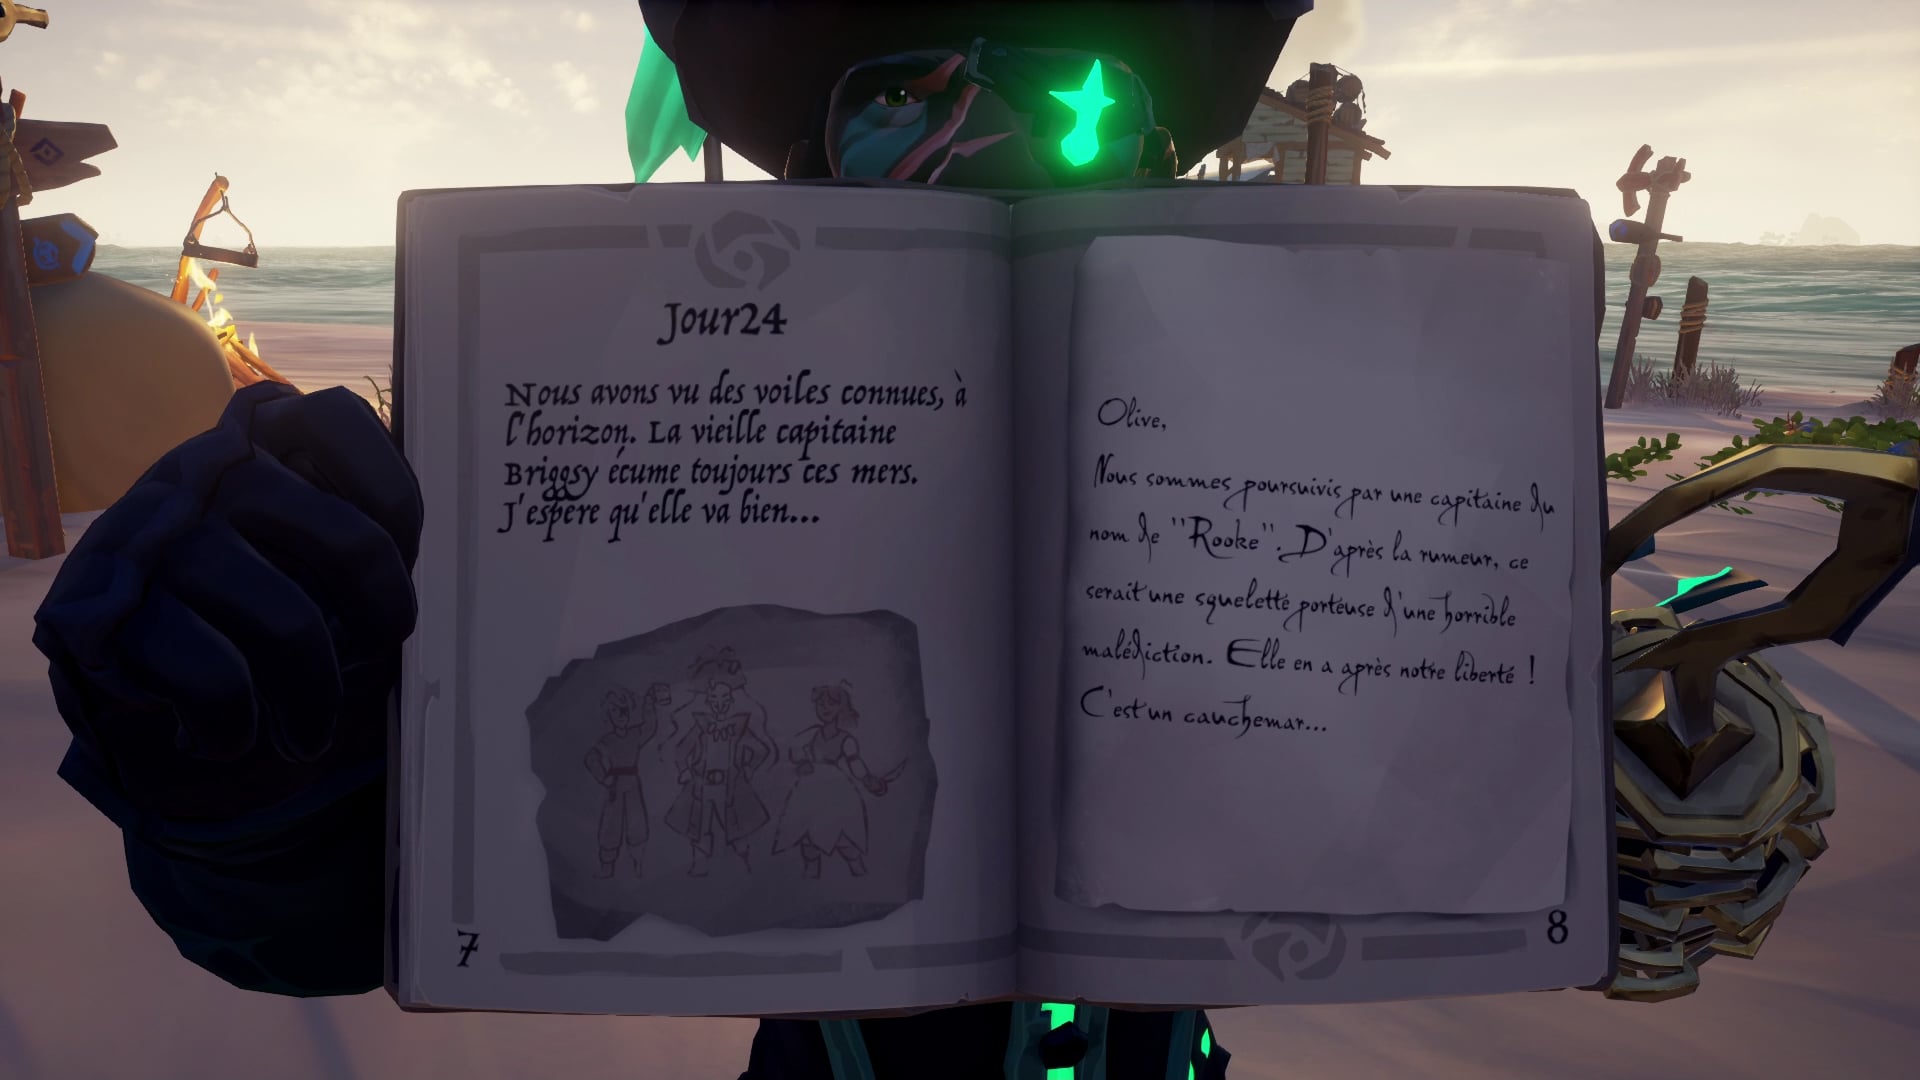 Jour24
Nous avons vu des voiles connues, à
l'horizon. La vieille capitaine
Briggsy écume toujours ces mers.
J'espère qu'elle va bien...
7
Olive,
Nous sommes poursuivis par une capitaine du
nom de "Rooke". D'après la rumeur, ce
serait une squelette porteuse d'une horrible
malédiction. Elle en a après notre liberté !
C'est un cauchemar...
8